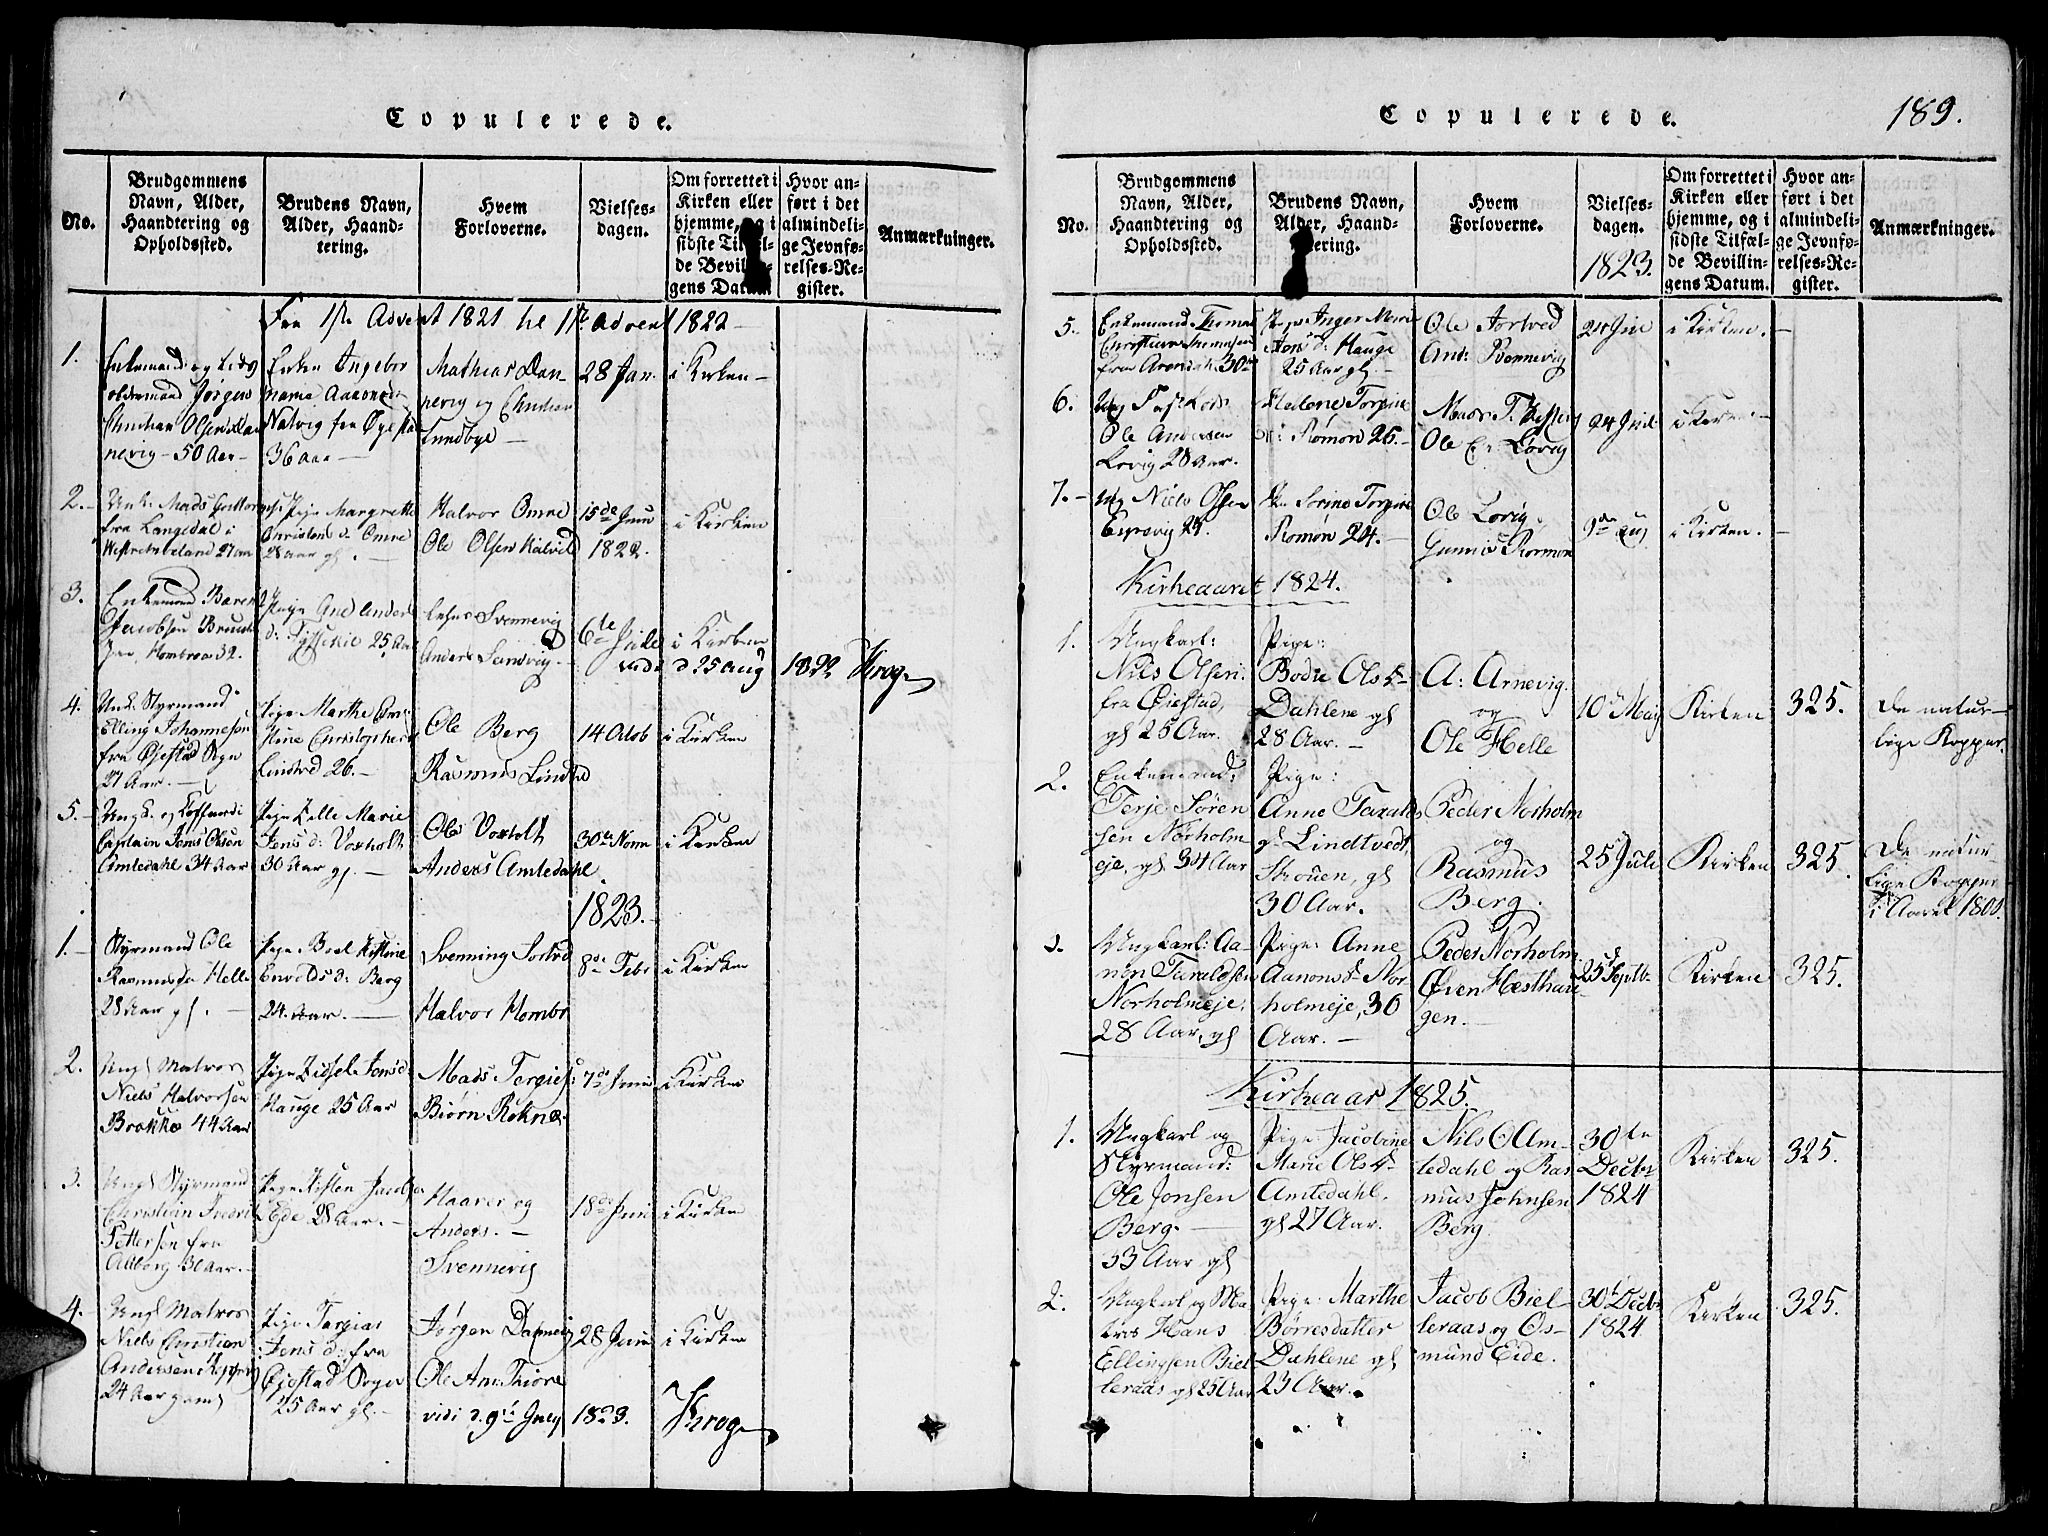 Copulerede.
No.
Brudgommens
Navn, Alder,
Haandtering og
Opholdssted.
Brudens Navn,
Alder, Haand-
tering.
Hvem
Forloverne.
Vielses-
dagen.
Om forrettet i
Kirken eller
hjemme, og i
sidste Tilfæl-
de Bevillin-
gens Datum
Hvor an-
ført i det
almindeli-
ge Jevnfø-
relses-Re-
gister.
Anmærkninger.
Fra 1ste Advent 1821 til 1ste Advent 1822
1.
Enkemand og
oldermand Jørgen
Christian Olsen
nevig - 50 Aar
Enken Ingebor
Natvig fra Øyesta
36 aar
Mathias Dan-
nevig og Christian
Lundbye
28 Jan.
i Kirken
2.
Unk. Mads
fra Langedal i
27 aar
Pige Margrethe
Christens d. Omre
28 aar gl.
Halvor Omre
Ole Olsen Kalvild
15de Juni
1822.
i Kirken
3.
Enkemand Barent
Jacobsen
Hombroe 32.
Pige Ane Anders
d: 25 Aar
Svennevig
Anders Sandvig
6te Julie
i Kirken
vidi d 25 Aug 1822 Krog
4.
Unk. Styrmand
Elling Johannesen
fra Øjestad Sogn
27 Aar.
Pige Marthe
Christophers
Lindtved 26.
Ole Berg
Rasmus Lindtved
14 Octob
i Kirken
5.
Ungk. og Coffardi
Captain Jens Olsen
Amledahl 34 Aar
Pige Zelle Marie
Jens d: Voxholt
30 Aar gl.
Ole Voxholt
Anders Amledahl.
30te Novm
i Kirken
1823.
1.
Styrmand Ole
Rasmusen Helle
28 Aar gl.
Pige Boel Kistine
Envolds d: Berg
24. Aar.
Svenning Tortved
Halvor Hombr
8de Febr
i Kirken
2.
Ungk Matros
Niels Halvorsen
Brække 44 Aar
Pige Zidsel Jens d:
Hauge 25 Aar
Mads Tergies:
Biørn Roknæs
7de Juni
i Kirken
3.
Ungk Styrmand
Christian Fredrik
Pettersen fra
Alborg 31 Aar.
Pige Kisten Jacobs
Eide 28 Aar.
Haaver og
Anders.
Svennevig
18de Juni
i Kirken
4.
Ungk Matros
Niels Christian
Andersen
24 Aar
Pige Targias
Jens d: fra
Øjestad Sogn
25 Aar gl.
Jørgen Dannevig
Ole And: Thore
28 Juni
i Kirken
vidi d. 9de July 1823. Krog
Copulerede.
189.
No.
Brudgommens
Navn, Alder,
Haandtering og
Opholdssted.
Brudens Navn,
Alder, Haand-
tering.
Hvem
Forloverne.
Vielses-
dagen.
1823.
Om forrettet i
Kirken eller
hjemme, og i
sidste Tilfæl-
de Bevillin-
gens Datum.
Hvor an-
ført i det
almindeli-
ge Jevnfø-
relses-Re-
gister.
Anmærkninger.
5.
Enkemand Thomas
Christian Thomesen
fra Arendal 30
Pige Inger Marie
Jens d: Hauge
25 Aar gl.
Ole Tortved
And: Svennevig
24 Julie
i Kirken.
6.
Ung
Ole Andersen
Lovig 28 Aar.
Helene Torgine
Rømøn 26.
Mads T. Hesten
Ole En: Lovig
24 Juli
i Kirken
7.
Ung Niels Olsen
Esprevig 29.
Pi Sorine Torgine
Romøn 24.
Ole Lovig
Gunnis Rommon
9de Aug
i Kirken.
Kirkeaaret 1824.
1.
Ungkarl:
Nils Olsen
fra Øiestad,
gl 25 Aar.
Pige:
Bodil Olsd
Dahlene gl
28 Aar.
A: Arnevig.
og
Ole Helle
10d May
Kirken
325.
De natur-
lige Kopper.
2.
Enkemand:
Terje Søren
sen Norholm
eje, gl. 34 Aar
Pige:
Anne Taralds
d. Lindtvedt,
Skouen, gl
30 Aar.
Peder Norholm
og
Rasmus
Berg.
25 Juli
Kirken
325.
De natur-
lige Kopper
i Aaret 1800.
3.
Ungkarl: Aa-
nen Taraldsen
Norholmeje.
28 Aar, gl
Pige: Anne
Aanonsd Nor-
holmeje, 30
Aar.
Peder Norholm.
Øven Hesthau-
gen.
25d Septb.
Kirken
325.
Kirkeaar 1825.
1.
Ungkarl og
Styrmand:
Ole Jonsen
Berg.
33 Aar gl
Pige: Jacobine
Marie Olsd
Amledahl.
gl 27 Aar.
Nils O Am-
ledahl og Ras
mus Johnsen
Berg.
30te
Decbr
1824
Kirken
325.
2.
Ungkarl og Ma
tros Hans
Ellingsen Biel
leraas gl 25 Aar
Pige: Marthe
Børresdatter
Dahlene gl
23 Aar.
Jacob Biel
leraas og Os-
mund Eide.
30t Decbr
1824
Kirken
325.